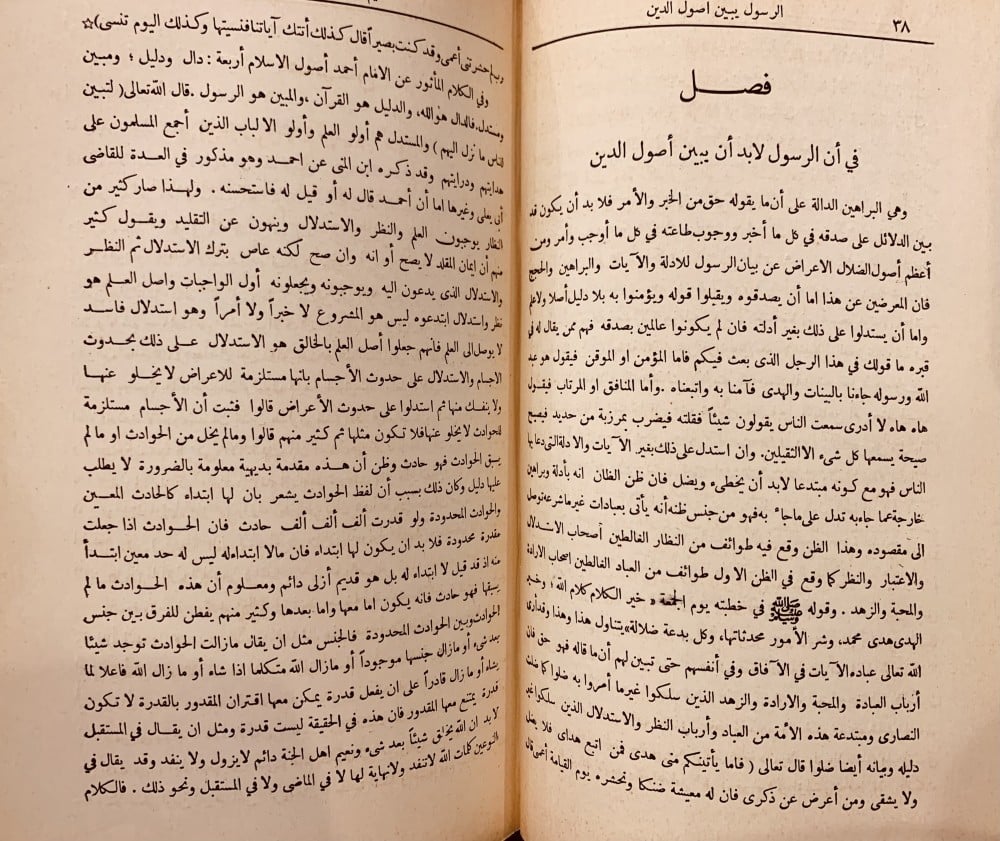 الرسول يبين أصول الدين
٣٨
فصل
في أن الرسول لابد أن يبين أصول الدين
وهي البراهين الدالة على أن ما يقوله حق من الخبر والأمر فلا بد أن يكون قد
بين الدلائل على صدقه في كل ما أخبر ووجوب طاعته في كل ما أوجب وأمر ومن
أعظم أصول الضلال الاعراض عن بيان الرسول للادلة والآيات والبراهين والحجج
فان المعرضين عن هذا اما أن يصدقوه ويقبلوا قوله ويؤمنوا به بلا دليل أصلا ولا علم
واما أن يستدلوا على ذلك بغير أدلته فان لم يكونوا عالمين بصدقه فهم ممن يقال له في
قبره ما قولك في هذا الرجل الذى بعث فيكم فاما المؤمن او الموقن فيقول هو عبد
الله ورسوله جاءنا بالبينات والهدى فآمنا به واتبعناه . وأما المنافق او المرتاب فيقول
هاه هاه لا أدرى سمعت الناس يقولون شيئاً فقلته فيضرب بمرزبة من حديد فيصيح
صيحة يسمعها كل شىء الا الثقيلين. وان استدل على ذلك بغير الآيات والادلة التى دعا بها
الناس فهو مع كونه مبتدعا لابد أن يخطىء ويضل فان ظن الظان انه بأدلة وبراهين
خارجة عما جاء به تدل على ما جاء به فهو من جنس ظنه أنه يأتى بعبادات غير ما شرعه توصل
الى مقصوده وهذا الظن وقع فيه طوائف من النظار الغالطين أصحاب الاستدلال
والاعتبار والنظر كما وقع في الظن الاول طوائف من العباد الغالطين اصحاب الارادة
والمحبة والزهد . وقوله ﷺ في خطبته يوم الجمعة « خير الكلام كلام الله ، وخير
الهدى هدى محمد، وشر الأمور محدثاتها، وكل بدعة ضلالة» يتناول هذا وهذا وقد أرى
الله تعالى عباده الآيات في الآفاق وفي أنفسهم حتى تبين لهم أن ما قاله فهو حق فان
أرباب العبادة والمحبة والارادة والزهد الذين سلكوا غير ما أمروا به ضلوا كما ضلت
النصارى ومبتدعة هذه الأمة من العباد وأرباب النظر والاستدلال الذين سلكوا غير
دليله وبيانه أيضا ضلوا قال تعالى ( فاما يأتينكم منى هدى فمن اتبع هداى فلا يضل
ولا يشقى ومن أعرض عن ذكرى فان له معيشة ضنكا ونحشره يوم القيامة أعمى قال
رب لم حشرتنى أعمى وقد كنت بصيراً قال كذلك أتتك آياتنا فنسيتها وكذلك اليوم تنسى)☆
وفي الكلام المأثور عن الامام أحمد أصول الاسلام أربعة : دال ودليل ؛ ومبين
ومستدل . فالدال هو الله، والدليل هو القرآن ، والمبين هو الرسول . قال الله تعالى ( لتبين
للناس ما نزل اليهم ) والمستدل هم أولو العلم وأولو الالباب الذين أجمع المسلمون على
هدايتهم ودرايتهم وقد ذكره ابن المنى عن احمد وهو مذكور في العدة للقاضى
أبى يعلى وغيرها اما أن أحمد قال له أو قيل له فاستحسنه . ولهذا صار كثير من
النظار يوجبون العلم والنظر والاستدلال وينهون عن التقليد ويقول كثير
منهم أن إيمان المقلد لا يصح أو انه وان صح لكنه عاص بترك الاستدلال ثم النظر
والاستدلال الذى يدعون اليه ويوجبونه ويجعلونه أول الواجبات واصل العلم هو
نظر واستدلال ابتدعوه ليس هو المشروع لا خبراً ولا أمراً وهو استدلال فاسد
لا يوصل الى العلم فانهم جعلوا أصل العلم بالخالق هو الاستدلال على ذلك بحدوث
الاجسام والاستدلال على حدوث الأجسام بانها مستلزمة للاعراض لا يخلو عنها
ولا ينفك منها ثم استدلوا على حدوث الأعراض قالوا فثبت أن الأجسام مستلزمة
للحوادث لا يخلو عنها فلا تكون مثلها ثم كثير منهم قالوا وما لم يخل من الحوادث او ما لم
يسبق الحوادث فهو حادث وظن أن هذه مقدمة بديهية معلومة بالضرورة لا يطلب
عليها دليل وكان ذلك بسبب أن لفظ الحوادث يشعر بان لها ابتداء كالحادث المعين
والحوادث المحدودة ولو قدرت ألف ألف ألف حادث فان الحوادث اذا جعلت
مقدرة محدودة فلا بد ان يكون لها ابتداء فان مالا ابتداء له ليس له حد معين ابتدأ
منه اذ قد قيل لا ابتداء له بل هو قديم أزلى دائم ومعلوم أن هذه الحوادث ما لم
يسبقها فهو حادث فانه يكون اما معها واما بعدها وكثير منهم يفطن للفرق بين جنس
الحوادث وبين الحوادث المحدودة فالجنس مثل ان يقال مازالت الحوادث توجد شيئا
بعد شىء أو مازال جنسها موجوداً أو مازال الله متكلما اذا شاء أو ما زال الله فاعلا لما
يشاء أو ما زال قادراً على ان يفعل قدرة يمكن معها اقتران المقدور بالقدرة لا تكون
قدرة يمتنع معها المقدور فان هذه في الحقيقة ليست قدرة ومثل ان يقال في المستقبل
لابد ان الله يخلق شيئاً بعد شىء ونعيم اهل الجنة دائم لا يزول ولا ينفد وقد يقال في
النوعين كلمات الله لا تنفد ولا نهاية لها لا في الماضى ولا في المستقبل ونحو ذلك . فالكلام